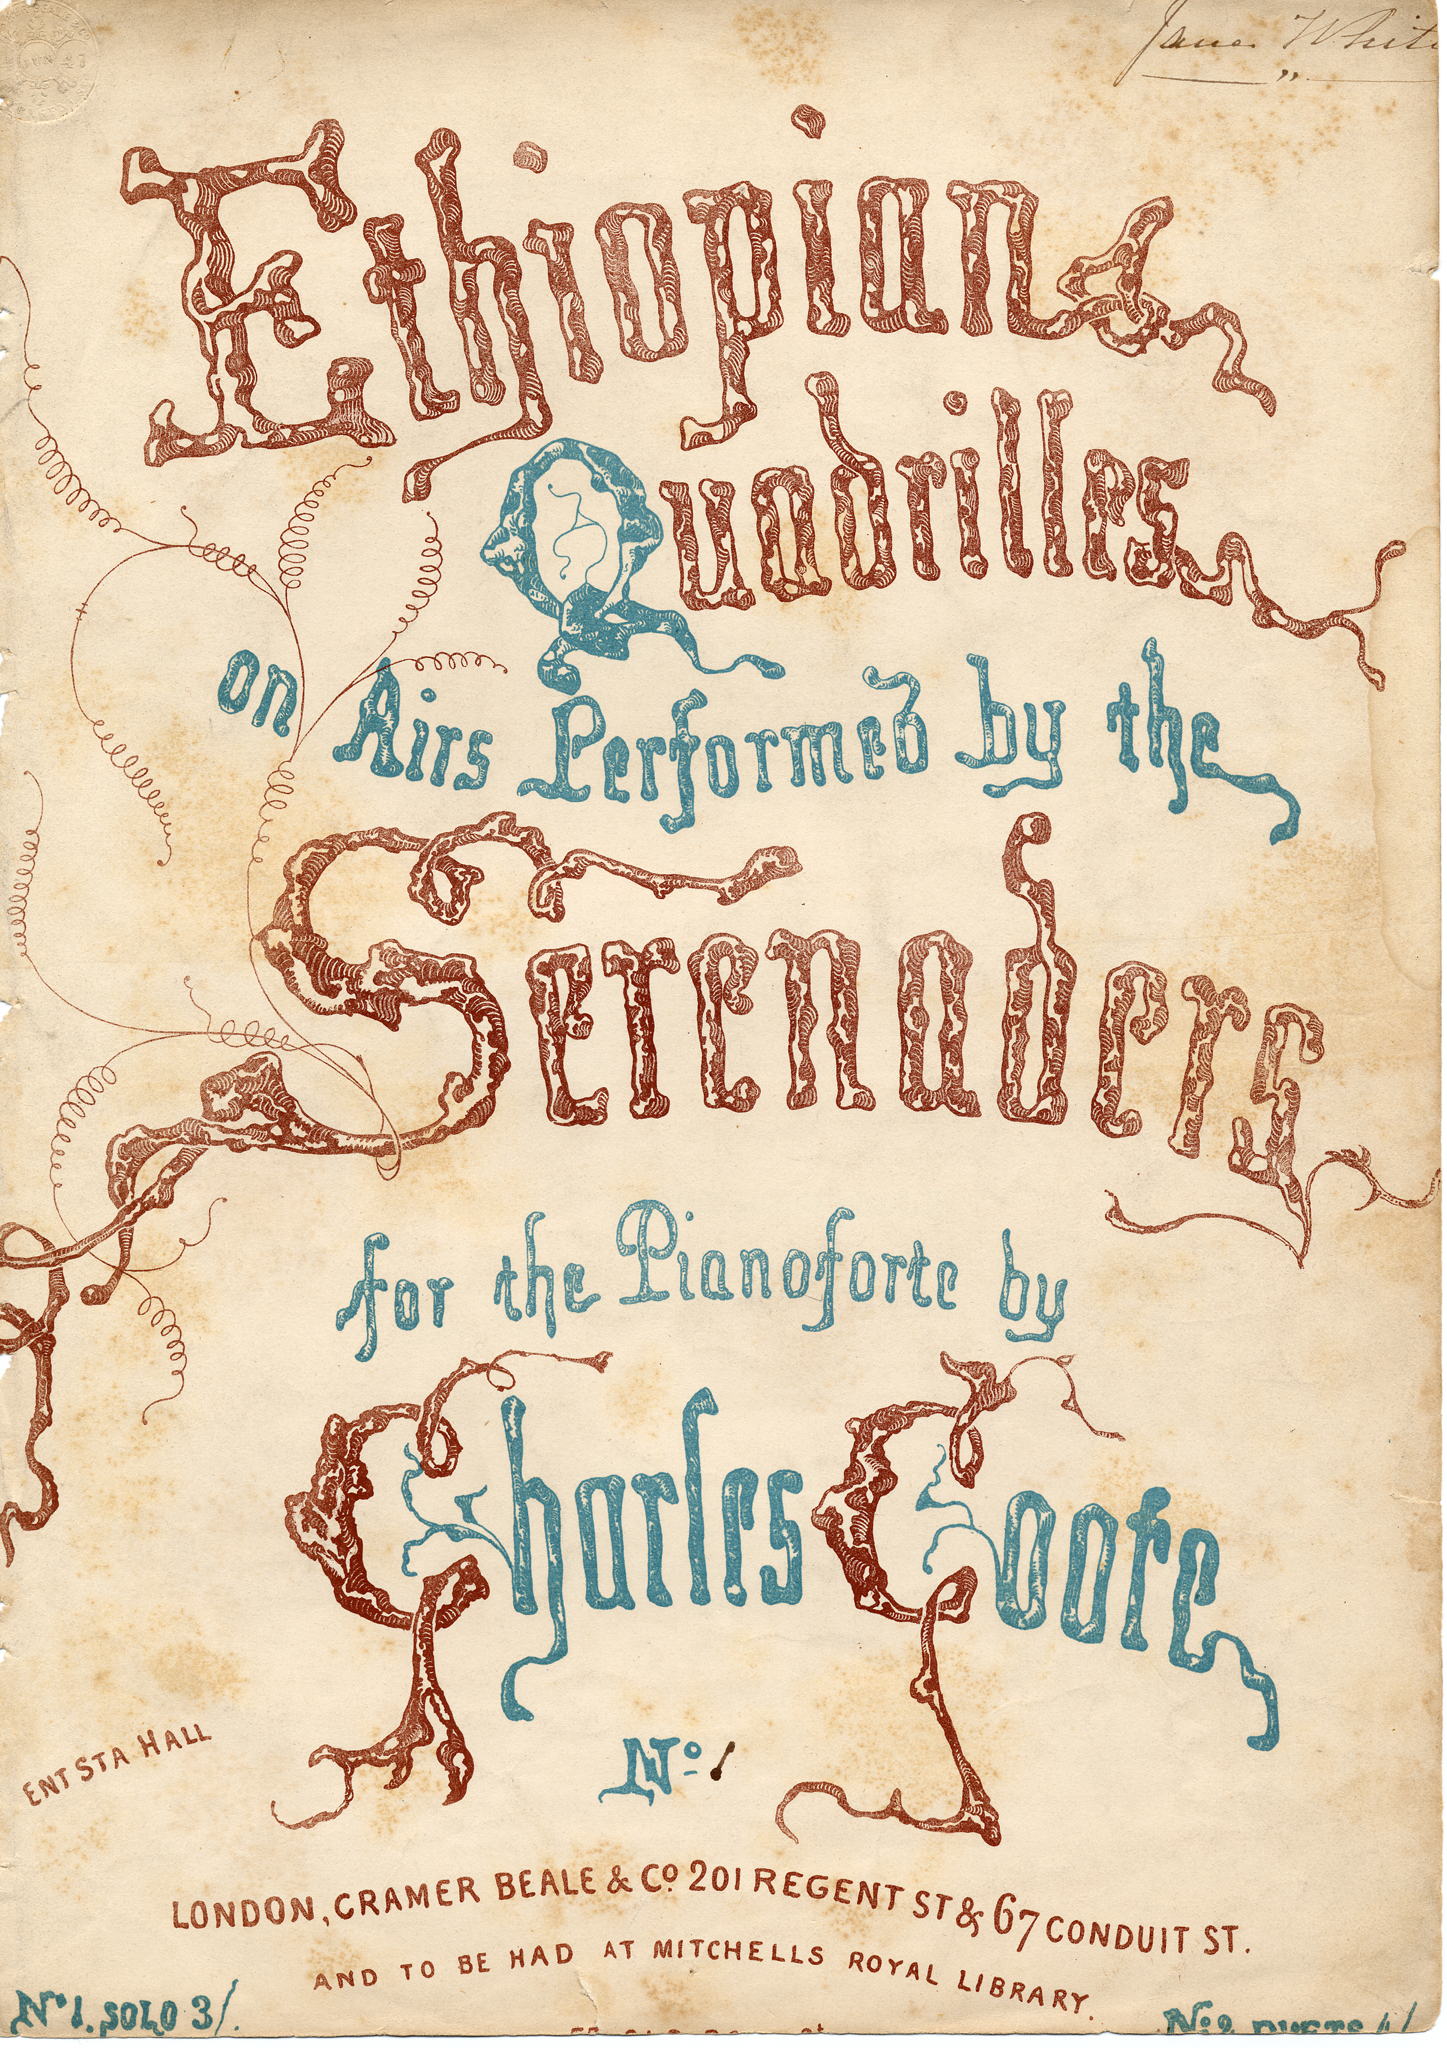 Jane White
Ethiopian
Quadrilles
on Airs Performed by the
Serenaders
for the Pianoforte by
Charles Coote
No. 1
ENT STA HALL
LONDON, CRAMER BEALE & Co. 201 REGENT ST & 67 CONDUIT ST.
AND TO BE HAD AT MITCHELLS ROYAL LIBRARY.
No 1. SOLO 3/.
No. 2 DUETS 4/